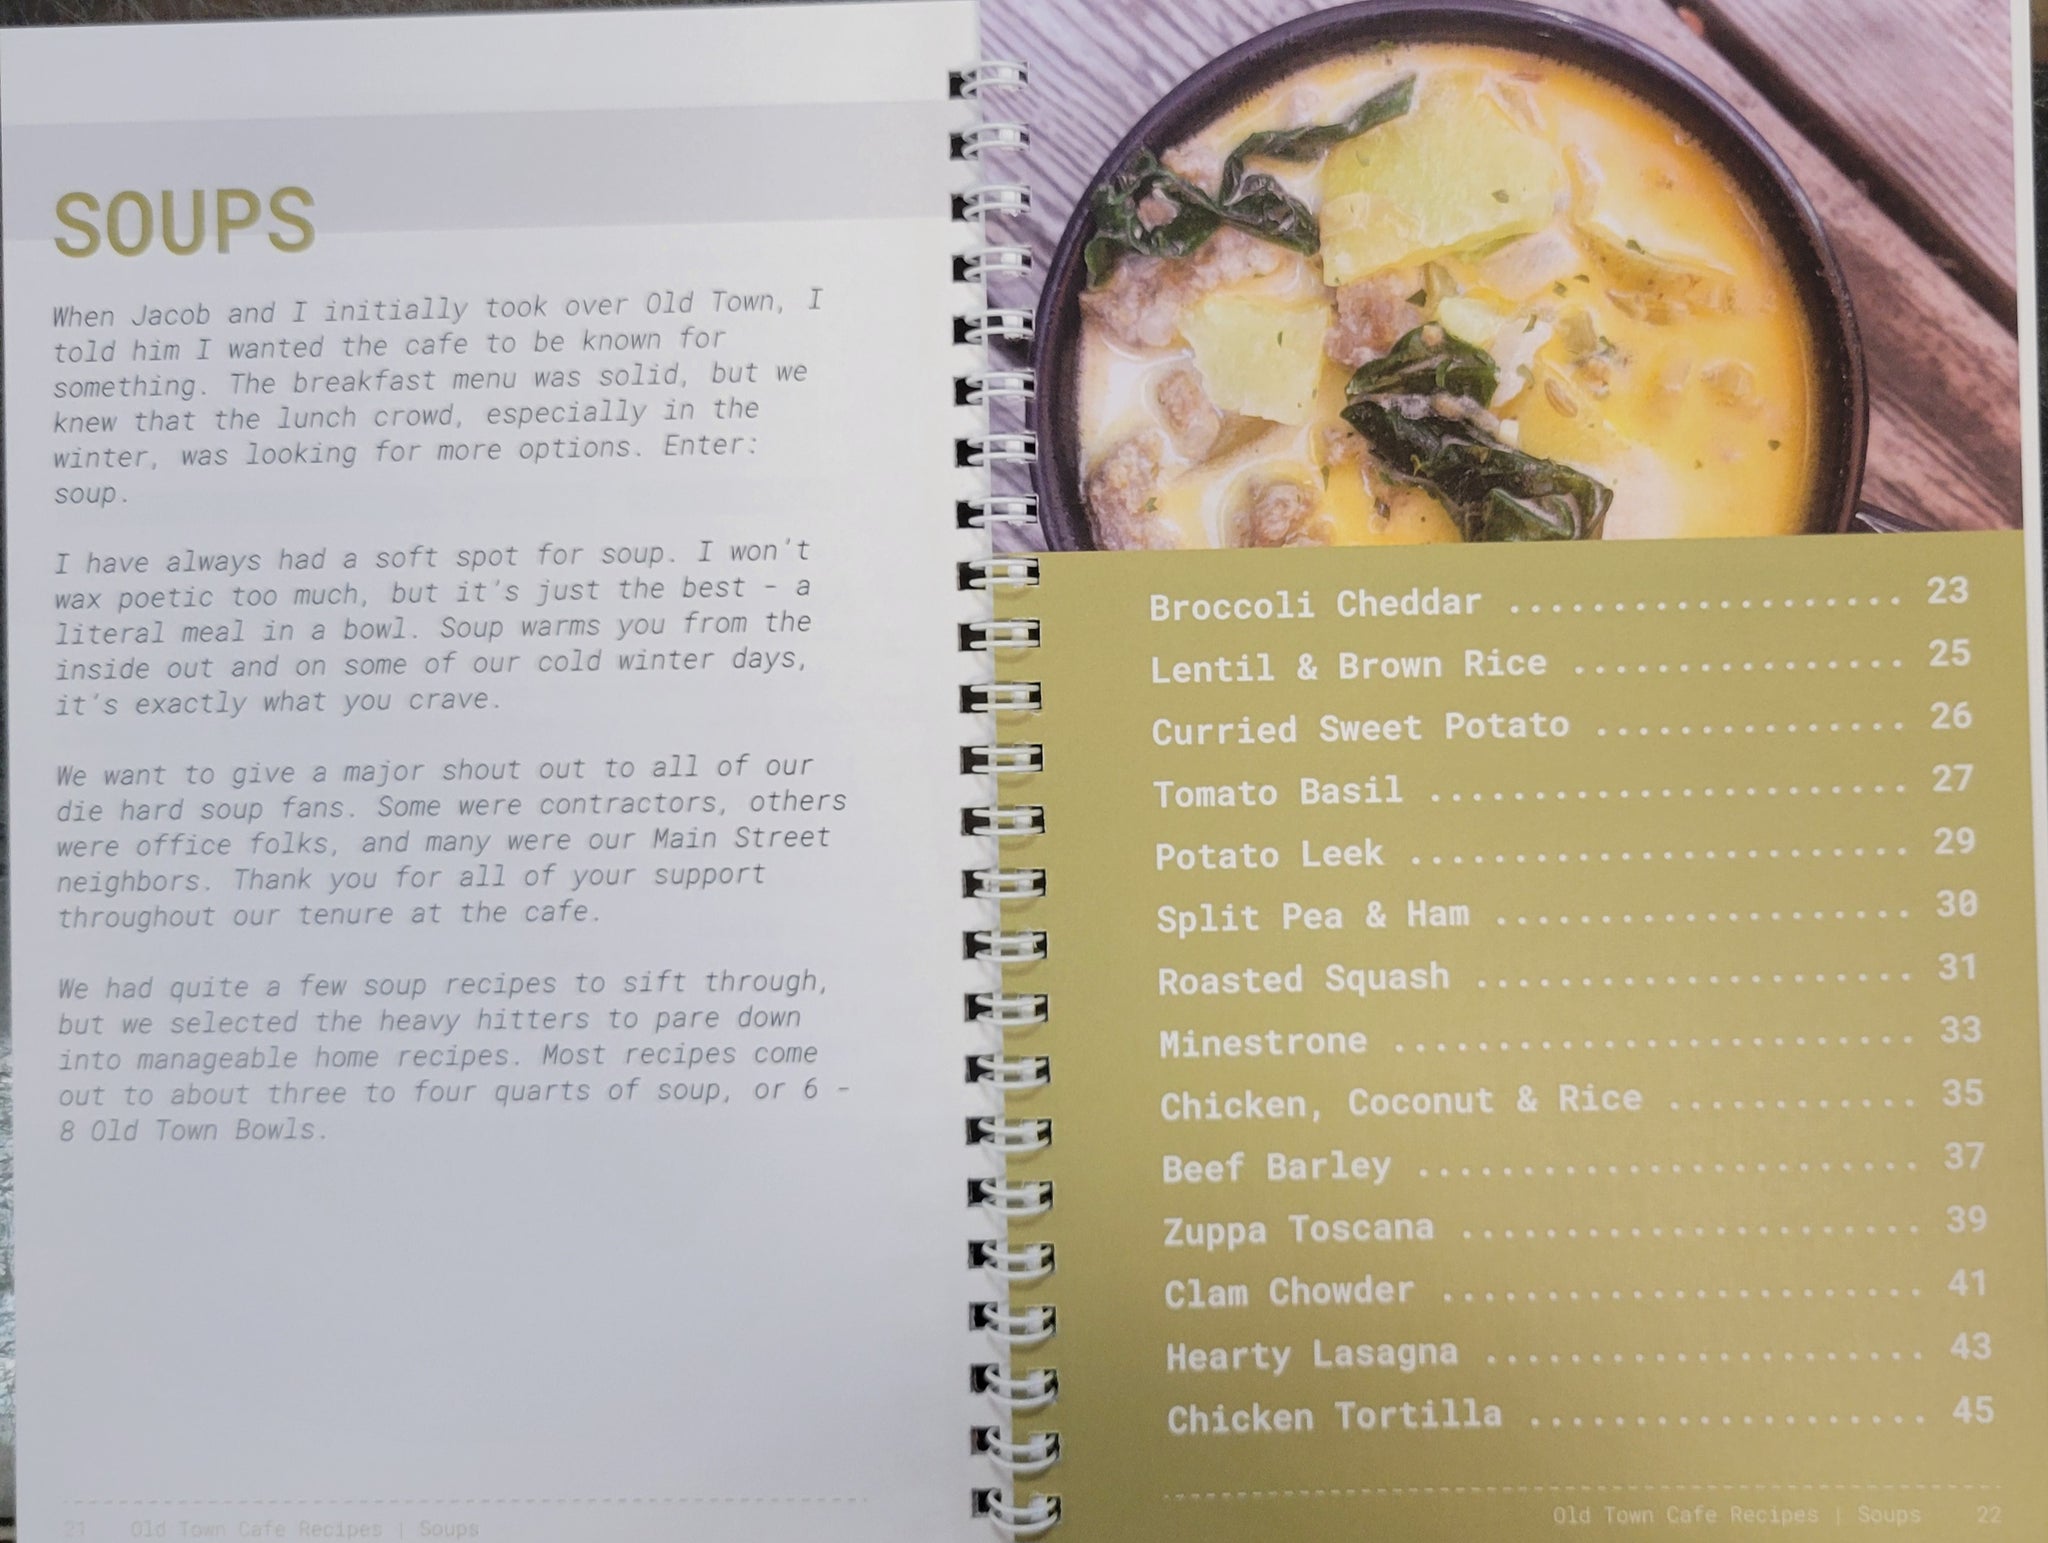 SOUPS
When Jacob and I initially took over Old Town, I
told him I wanted the cafe to be known for
something. The breakfast menu was solid, but we
knew that the lunch crowd, especially in the
winter, was looking for more options. Enter:
soup.
I have always had a soft spot for soup. I won't
wax poetic too much, but it's just the best - a
literal meal in a bowl. Soup warms you from the
inside out and on some of our cold winter days,
it's exactly what you crave.
We want to give a major shout out to all of our
die hard soup fans. Some were contractors, others
were office folks, and many were our Main Street
neighbors. Thank you for all of your support
throughout our tenure at the cafe.
We had quite a few soup recipes to sift through,
but we selected the heavy hitters to pare down
into manageable home recipes. Most recipes come
out to about three to four quarts of soup, or 6 -
8 Old Town Bowls.
21 Old Town Cafe Recipes | Soups
Broccoli Cheddar .................... 23
Lentil & Brown Rice ................ 25
Curried Sweet Potato ............... 26
Tomato Basil ....................... 27
Potato Leek ........................ 29
Split Pea & Ham .................... 30
Roasted Squash ..................... 31
Minestrone ......................... 33
Chicken, Coconut & Rice ............ 35
Beef Barley ........................ 37
Zuppa Toscana ...................... 39
Clam Chowder ....................... 41
Hearty Lasagna ..................... 43
Chicken Tortilla ................... 45
Old Town Cafe Recipes | Soups 22